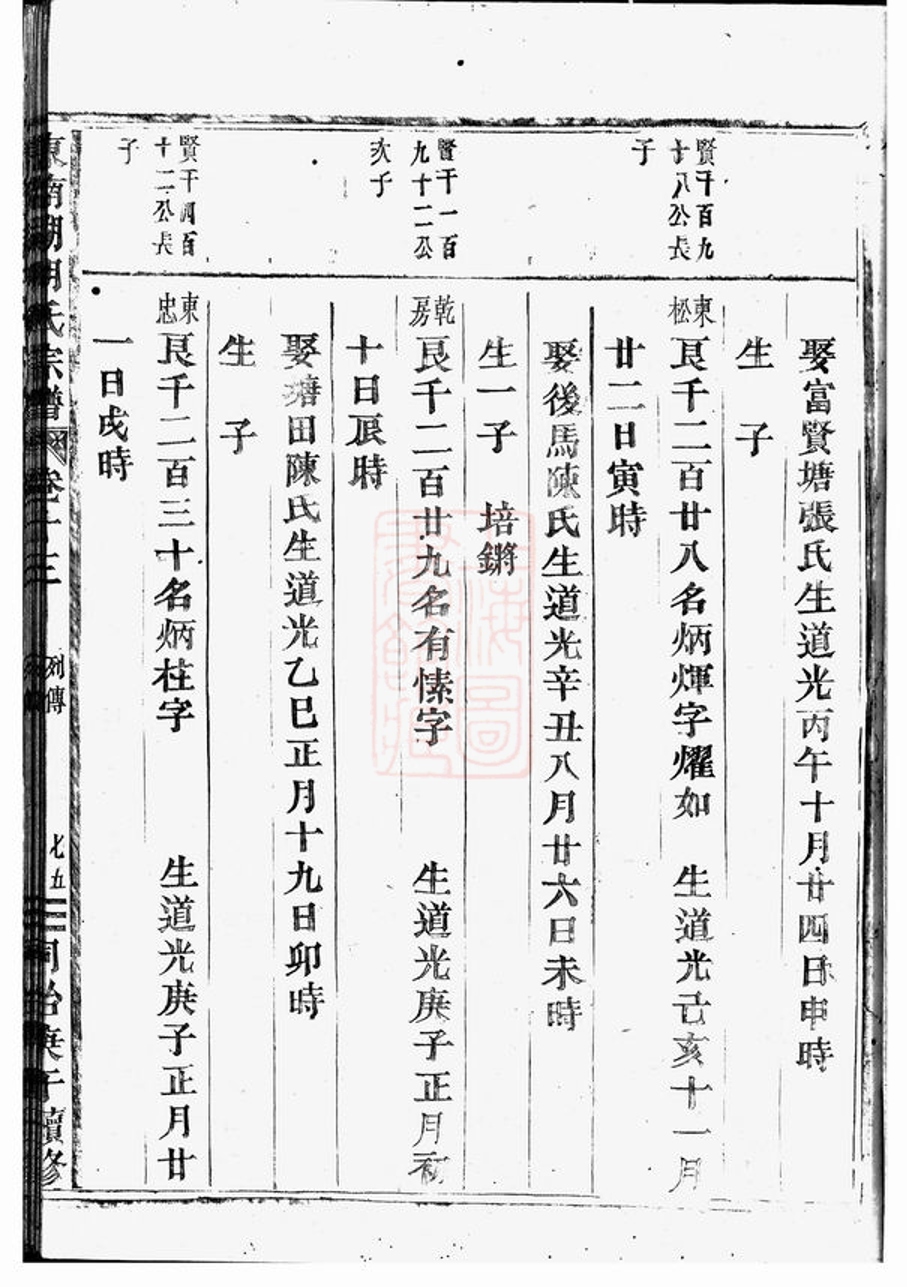 娶富賢塘張氏生道光丙午十月廿四日申時
生　子
賢千百九
十八公長
子
東
松
艮千二百廿八名炳煇字燿如　生道光己亥十一月
廿二日寅時
娶後馬陳氏生道光辛丑八月廿六日未時
生一子　培鏘
賢千一百
九十二公
次子
乾
房
艮千二百廿九名有愫字　生道光庚子正月初
十日辰時
娶塘田陳氏生道光乙巳正月十九日卯時
生　子
賢千四百
十二公長
子
東
忠
艮千二百三十名炳柱字　生道光庚子正月廿
一日戌時
東南湖胡氏宗譜　卷十三　列傳　七五　同治庚午續修
上海圖
書館藏